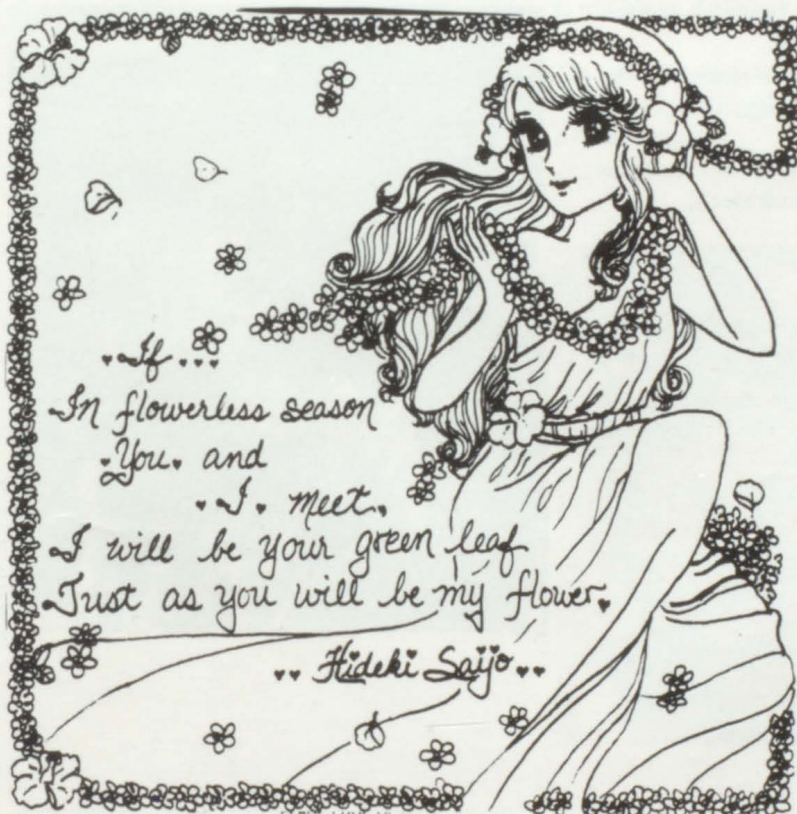 If...
In flowerless season
You and
I meet,
I will be your green leaf
Just as you will be my flower.
Hideki Saijo